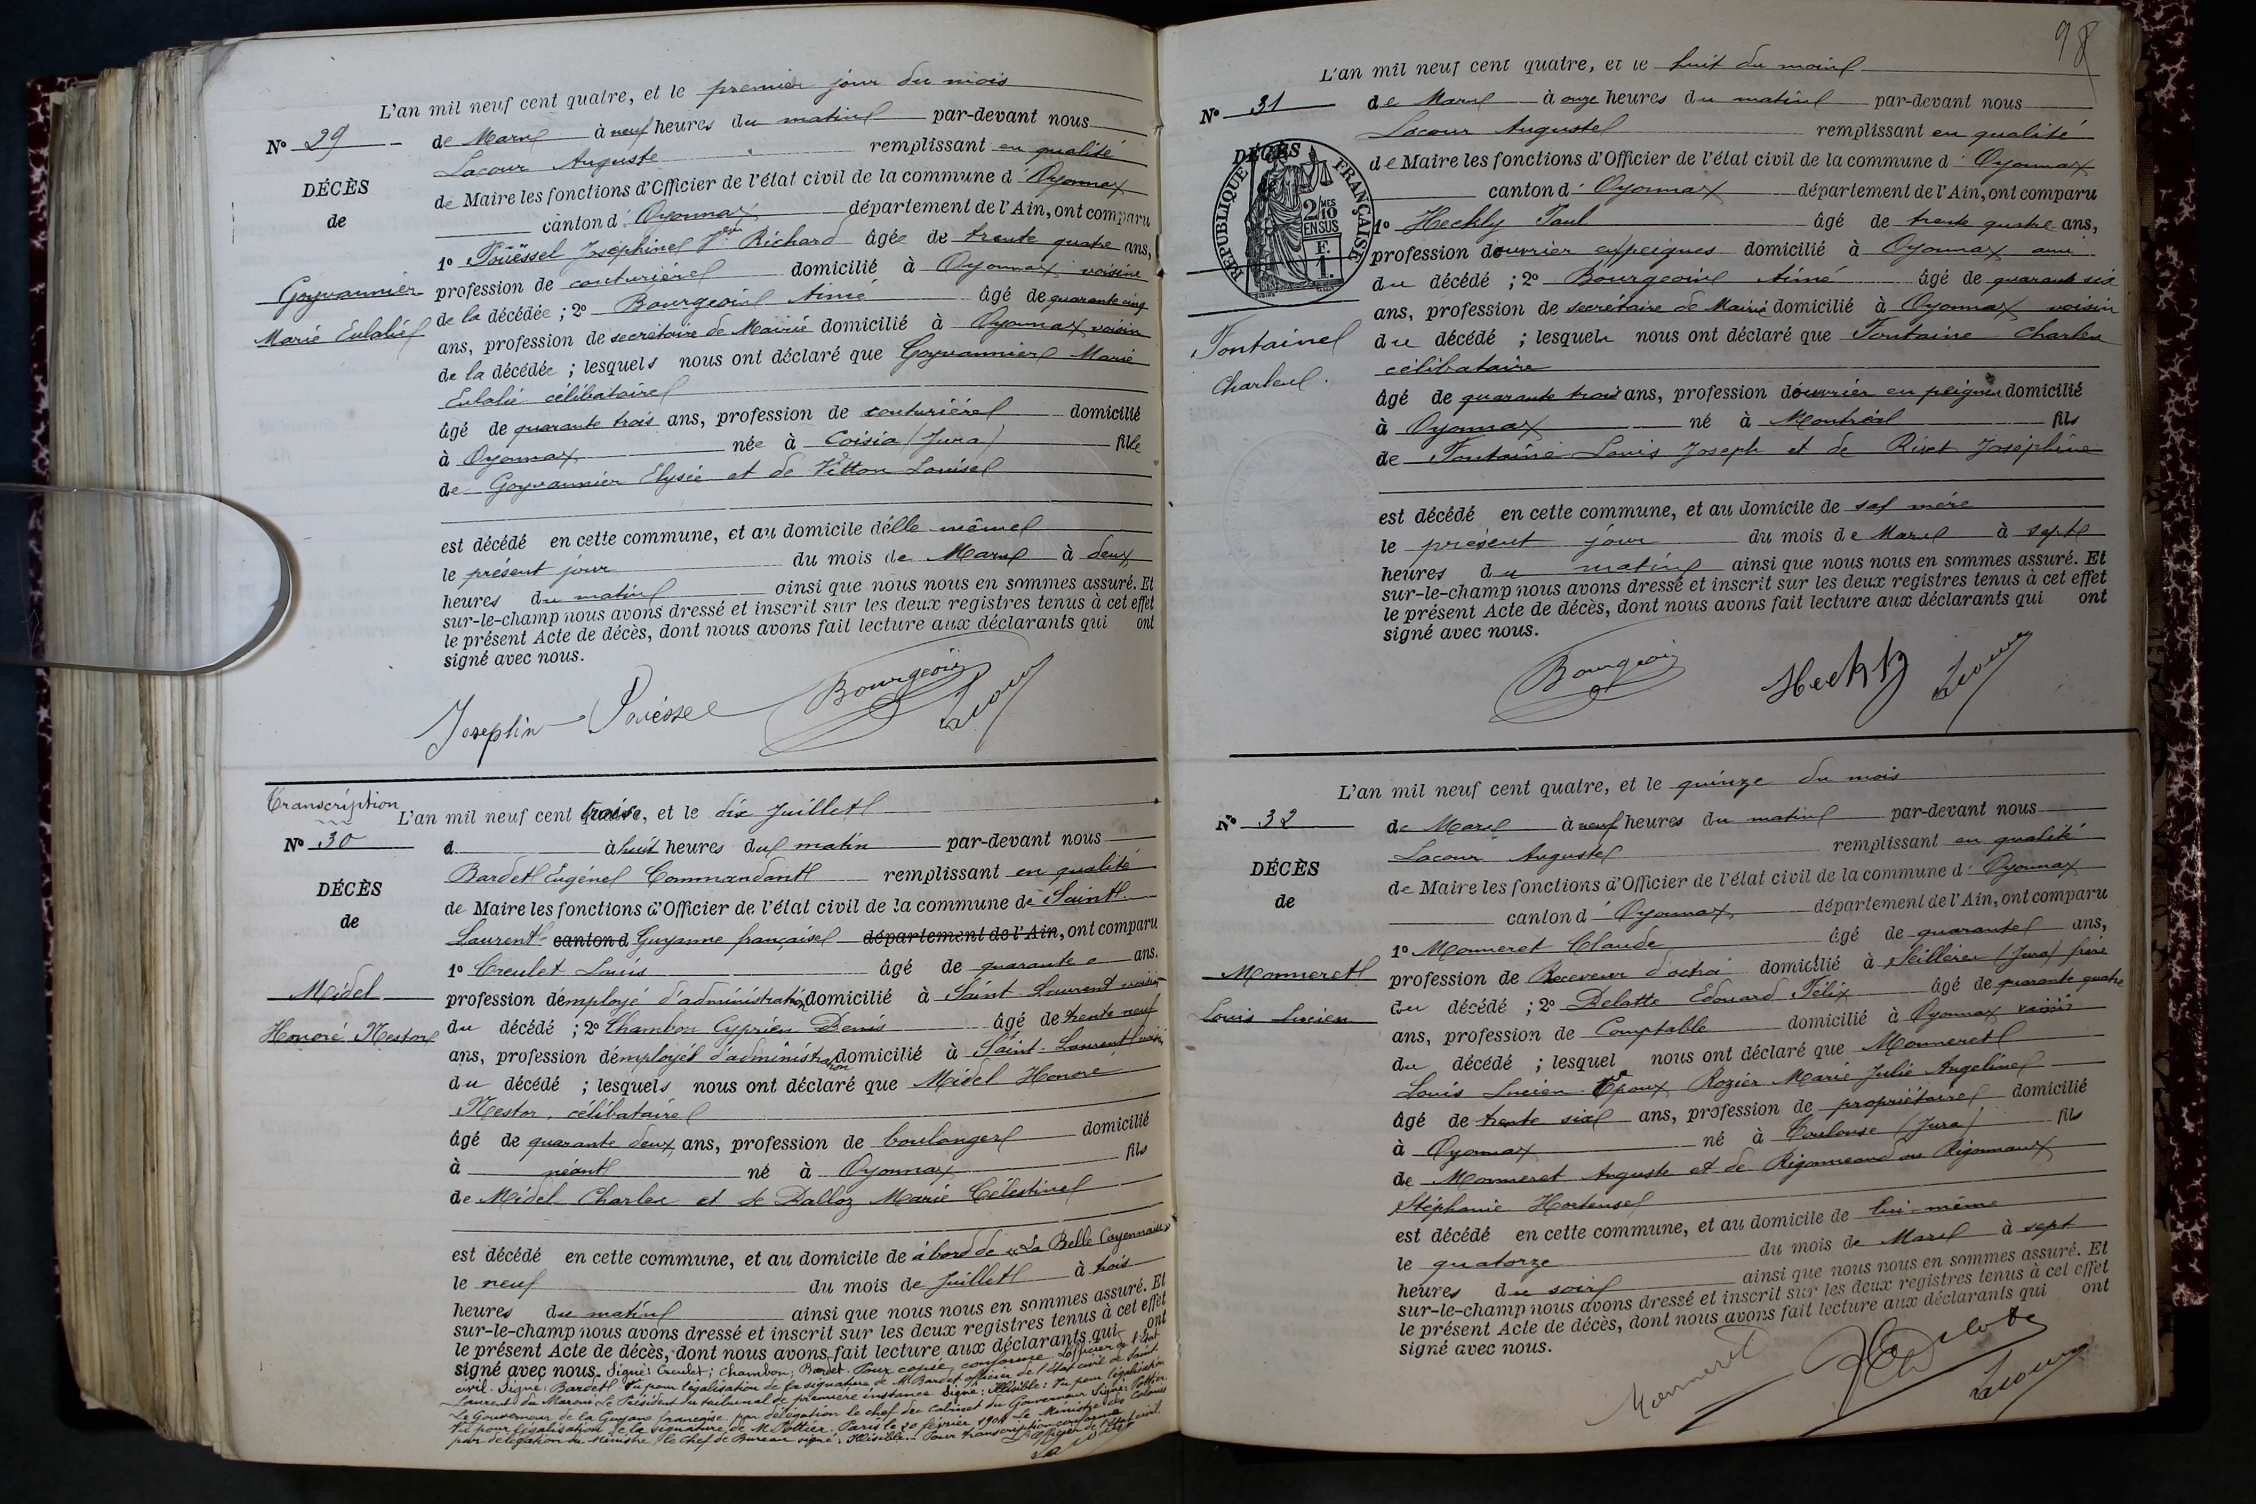 L'an mil neuf cent quatre, et le premier jour du mois
N° 29
de Mars à neuf heures du matin par-devant nous
Lacour Auguste remplissant en qualité
DÉCÈS
de Maire les fonctions d'Officier de l'état civil de la commune d'Oyonnax
de
canton d'Oyonnax département de l'Ain, ont comparu
1° Pouëssel Joséphine Vve Richard âgée de trente quatre ans,
Goyvannier
profession de couturière domicilié à Oyonnax voisine
Marie Eulalie
de la décédée ; 2° Bourgeois Aimé âgé de quarante cinq
ans, profession de secrétaire de Mairie domicilié à Oyonnax voisin
de la décédée ; lesquels nous ont déclaré que Goyvannier Marie
Eulalie célibataire
âgé de quarante trois ans, profession de couturière domicilié
à Oyonnax née à Coisia (Jura) fille
de Goyvannier Elysée et de Vitton Louise
est décédé en cette commune, et au domicile d'elle même
le présent jour du mois de Mars à deux
heures du matin ainsi que nous nous en sommes assuré. Et
sur-le-champ nous avons dressé et inscrit sur les deux registres tenus à cet effet
le présent Acte de décès, dont nous avons fait lecture aux déclarants qui ont
signé avec nous.
Bourgeois
Lacour
Transcription
L'an mil neuf cent trois, et le dix Juillet
N° 30
d à huit heures du matin par-devant nous
Bardet Eugène Commandant remplissant en qualité
DÉCÈS
de Maire les fonctions d'Officier de l'état civil de la commune de Saint
de
Laurent canton d Guyanne française département de l'Ain, ont comparu
1° Creulet Louis âgé de quarante ans.
Midel
profession d'employé d'administration domicilié à Saint-Laurent voisin
Honoré Nestor
du décédé ; 2° Chambon Cyprien Denis âgé de trente neuf
ans, profession d'employé d'administration domicilié à Saint-Laurent voisin
du décédé ; lesquels nous ont déclaré que Midel Honoré
Nestor, célibataire
âgé de quarante deux ans, profession de boulanger domicilié
à néant né à Oyonnax fils
de Midel Charles et de Dalloz Marie Célestine
est décédé en cette commune, et au domicile de à bord de "La Belle Cayennaise"
le neuf du mois de Juillet à trois
heures du matin ainsi que nous nous en sommes assuré. Et
sur-le-champ nous avons dressé et inscrit sur les deux registres tenus à cet effet
le présent Acte de décès, dont nous avons fait lecture aux déclarants qui ont
signé avec nous. Signé: Creulet; Chambon; Bardet. Pour copie conforme L'officier de l'état
civil. Signé: Bardet. Vu pour légalisation de la signature de M. Bardet officier de l'état civil de Saint
Laurent du Maroni Le Président du tribunal de première instance Signé: Illisible: Vu pour légalisation
Le Gouverneur de la Guyane française par délégation le chef du Cabinet du Gouverneur Signé: Pottier
Vu pour légalisation de la signature de M. Pottier. Paris le 20 février 1904 Le Ministre des Colonies
par délégation du Ministre le Chef de Bureau signé: Illisible. Pour transcription conforme
L'officier de l'état civil.
Lacour
98
L'an mil neuf cent quatre, et le huit du mois
N° 31
de Mars à onze heures du matin par-devant nous
Lacour Auguste remplissant en qualité
DÉCÈS
RÉPUBLIQUE FRANÇAISE
2/10 MES EN SUS
F. 1.
de Maire les fonctions d'Officier de l'état civil de la commune d'Oyonnax
canton d'Oyonnax département de l'Ain, ont comparu
1° Hechly Paul âgé de trente quatre ans,
profession d'ouvrier en peignes domicilié à Oyonnax ami
du décédé ; 2° Bourgeois Aimé âgé de quarante six
ans, profession de secrétaire de Mairie domicilié à Oyonnax voisin
Fontaine
du décédé ; lesquels nous ont déclaré que Fontaine Charles
Charles.
célibataire
âgé de quarante trois ans, profession d'ouvrier en peignes domicilié
à Oyonnax né à Montréal fils
de Fontaine Louis Joseph et de Rivet Joséphine
est décédé en cette commune, et au domicile de sa mère
le présent jour du mois de Mars à sept
heures du matin ainsi que nous nous en sommes assuré. Et
sur-le-champ nous avons dressé et inscrit sur les deux registres tenus à cet effet
le présent Acte de décès, dont nous avons fait lecture aux déclarants qui ont
signé avec nous.
Bourgeois
Hechly
Lacour
L'an mil neuf cent quatre, et le quinze du mois
N° 32
de Mars à neuf heures du matin par-devant nous
Lacour Auguste remplissant en qualité
DÉCÈS
de Maire les fonctions d'Officier de l'état civil de la commune d'Oyonnax
de
canton d'Oyonnax département de l'Ain, ont comparu
1° Monneret Claude âgé de quarante ans,
Monneret
profession de Receveur d'octroi domicilié à (Jura) frère
Louis Lucien
du décédé ; 2° Delatte Edouard Félix âgé de quarante quatre
ans, profession de Comptable domicilié à Oyonnax voisin
du décédé ; lesquel nous ont déclaré que Monneret
Louis Lucien Epoux Rozier Marie Julie Angeline
âgé de trente six ans, profession de propriétaire domicilié
à Oyonnax né à Toulouse (Jura) fils
de Monneret Auguste et de Rigonneaud ou Rigonnaux
Stéphanie Hortense
est décédé en cette commune, et au domicile de lui-même
le quatorze du mois de Mars à sept
heures du soir ainsi que nous nous en sommes assuré. Et
sur-le-champ nous avons dressé et inscrit sur les deux registres tenus à cet effet
le présent Acte de décès, dont nous avons fait lecture aux déclarants qui ont
signé avec nous.
Monneret
Delatte
Lacour